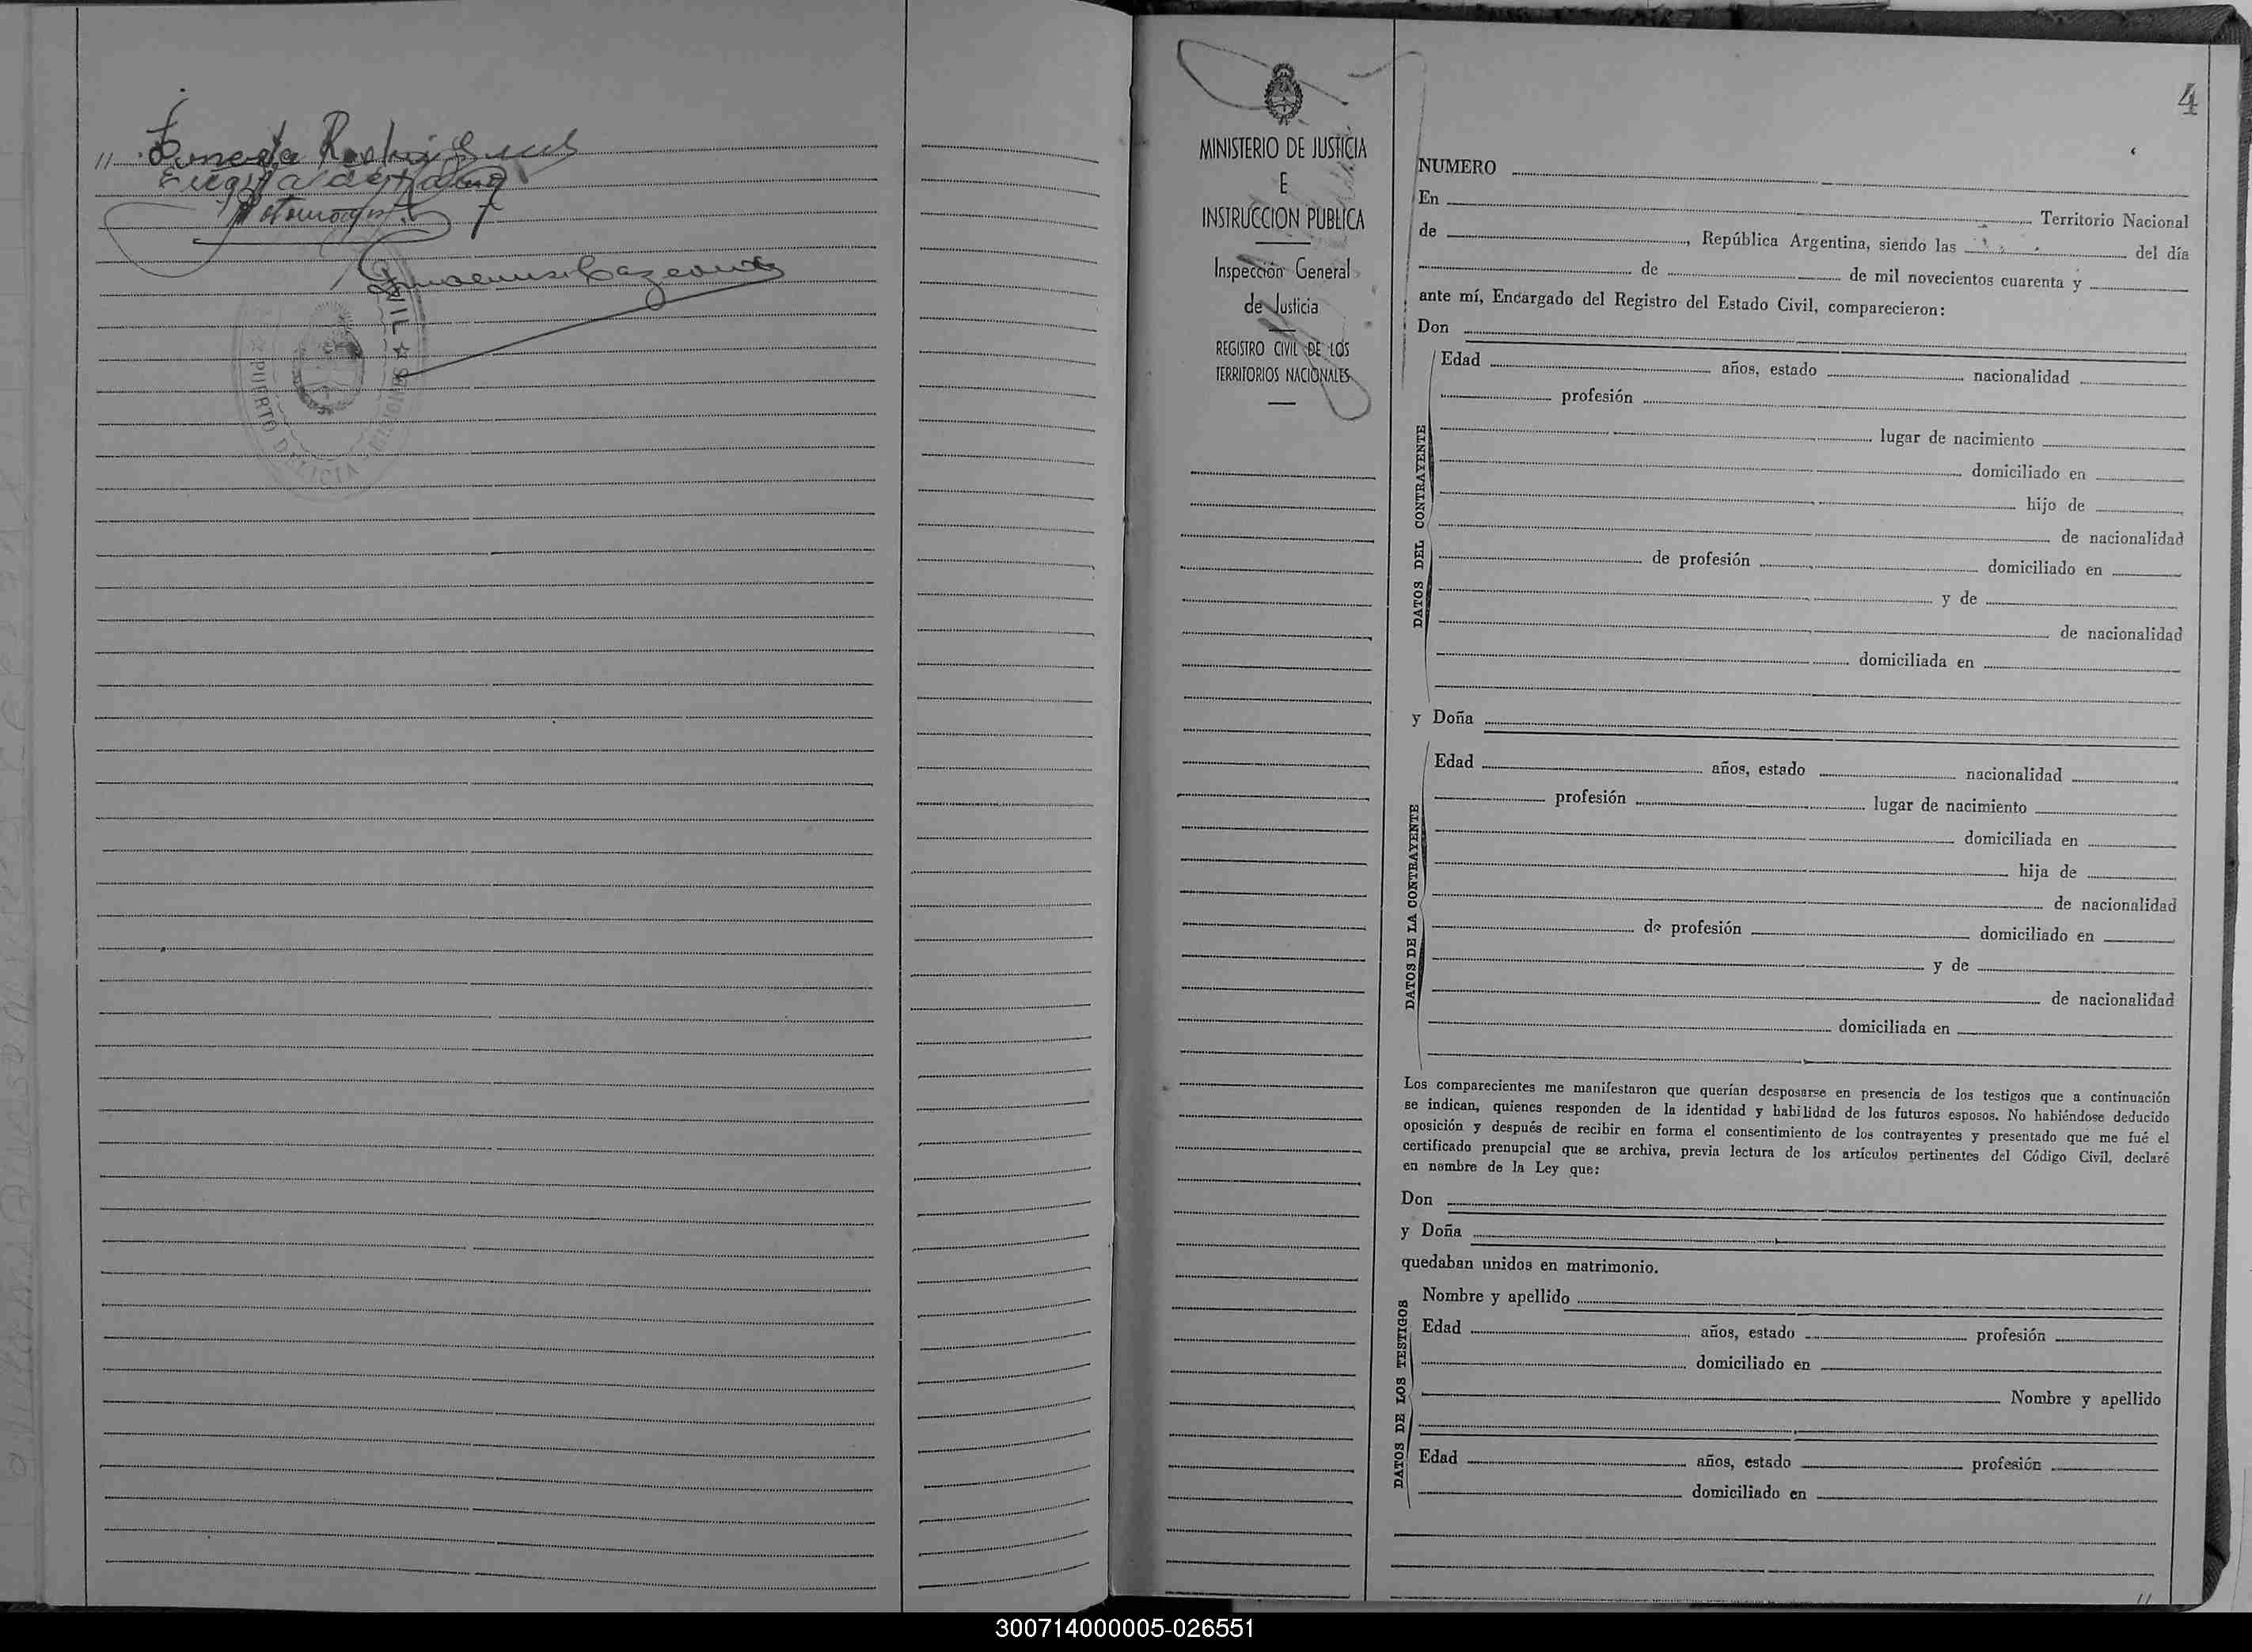 Ernesta Rodriguez
CIVIL ★
PUERTO DELICIA MISIONES
MINISTERIO DE JUSTICIA
E
INSTRUCCION PUBLICA
Inspección General
de Justicia
REGISTRO CIVIL DE LOS
TERRITORIOS NACIONALES
4
NUMERO
En Territorio Nacional
de , República Argentina, siendo las del día
de de mil novecientos cuarenta y
ante mí, Encargado del Registro del Estado Civil, comparecieron:
Don
DATOS DEL CONTRAYENTE
Edad años, estado nacionalidad
profesión
lugar de nacimiento
domiciliado en
hijo de
de nacionalidad
de profesión domiciliado en
y de
de nacionalidad
domiciliada en
y Doña
DATOS DE LA CONTRAYENTE
Edad años, estado nacionalidad
profesión lugar de nacimiento
domiciliada en
hija de
de nacionalidad
de profesión domiciliado en
y de
de nacionalidad
domiciliada en
Los comparecientes me manifestaron que querían desposarse en presencia de los testigos que a continuación
se indican, quienes responden de la identidad y habilidad de los futuros esposos. No habiéndose deducido
oposición y después de recibir en forma el consentimiento de los contrayentes y presentado que me fué el
certificado prenupcial que se archiva, previa lectura de los artículos pertinentes del Código Civil, declaré
en nombre de la Ley que:
Don
y Doña
quedaban unidos en matrimonio.
DATOS DE LOS TESTIGOS
Nombre y apellido
Edad años, estado profesión
domiciliado en
Nombre y apellido
Edad años, estado profesión
domiciliado en
300714000005-026551